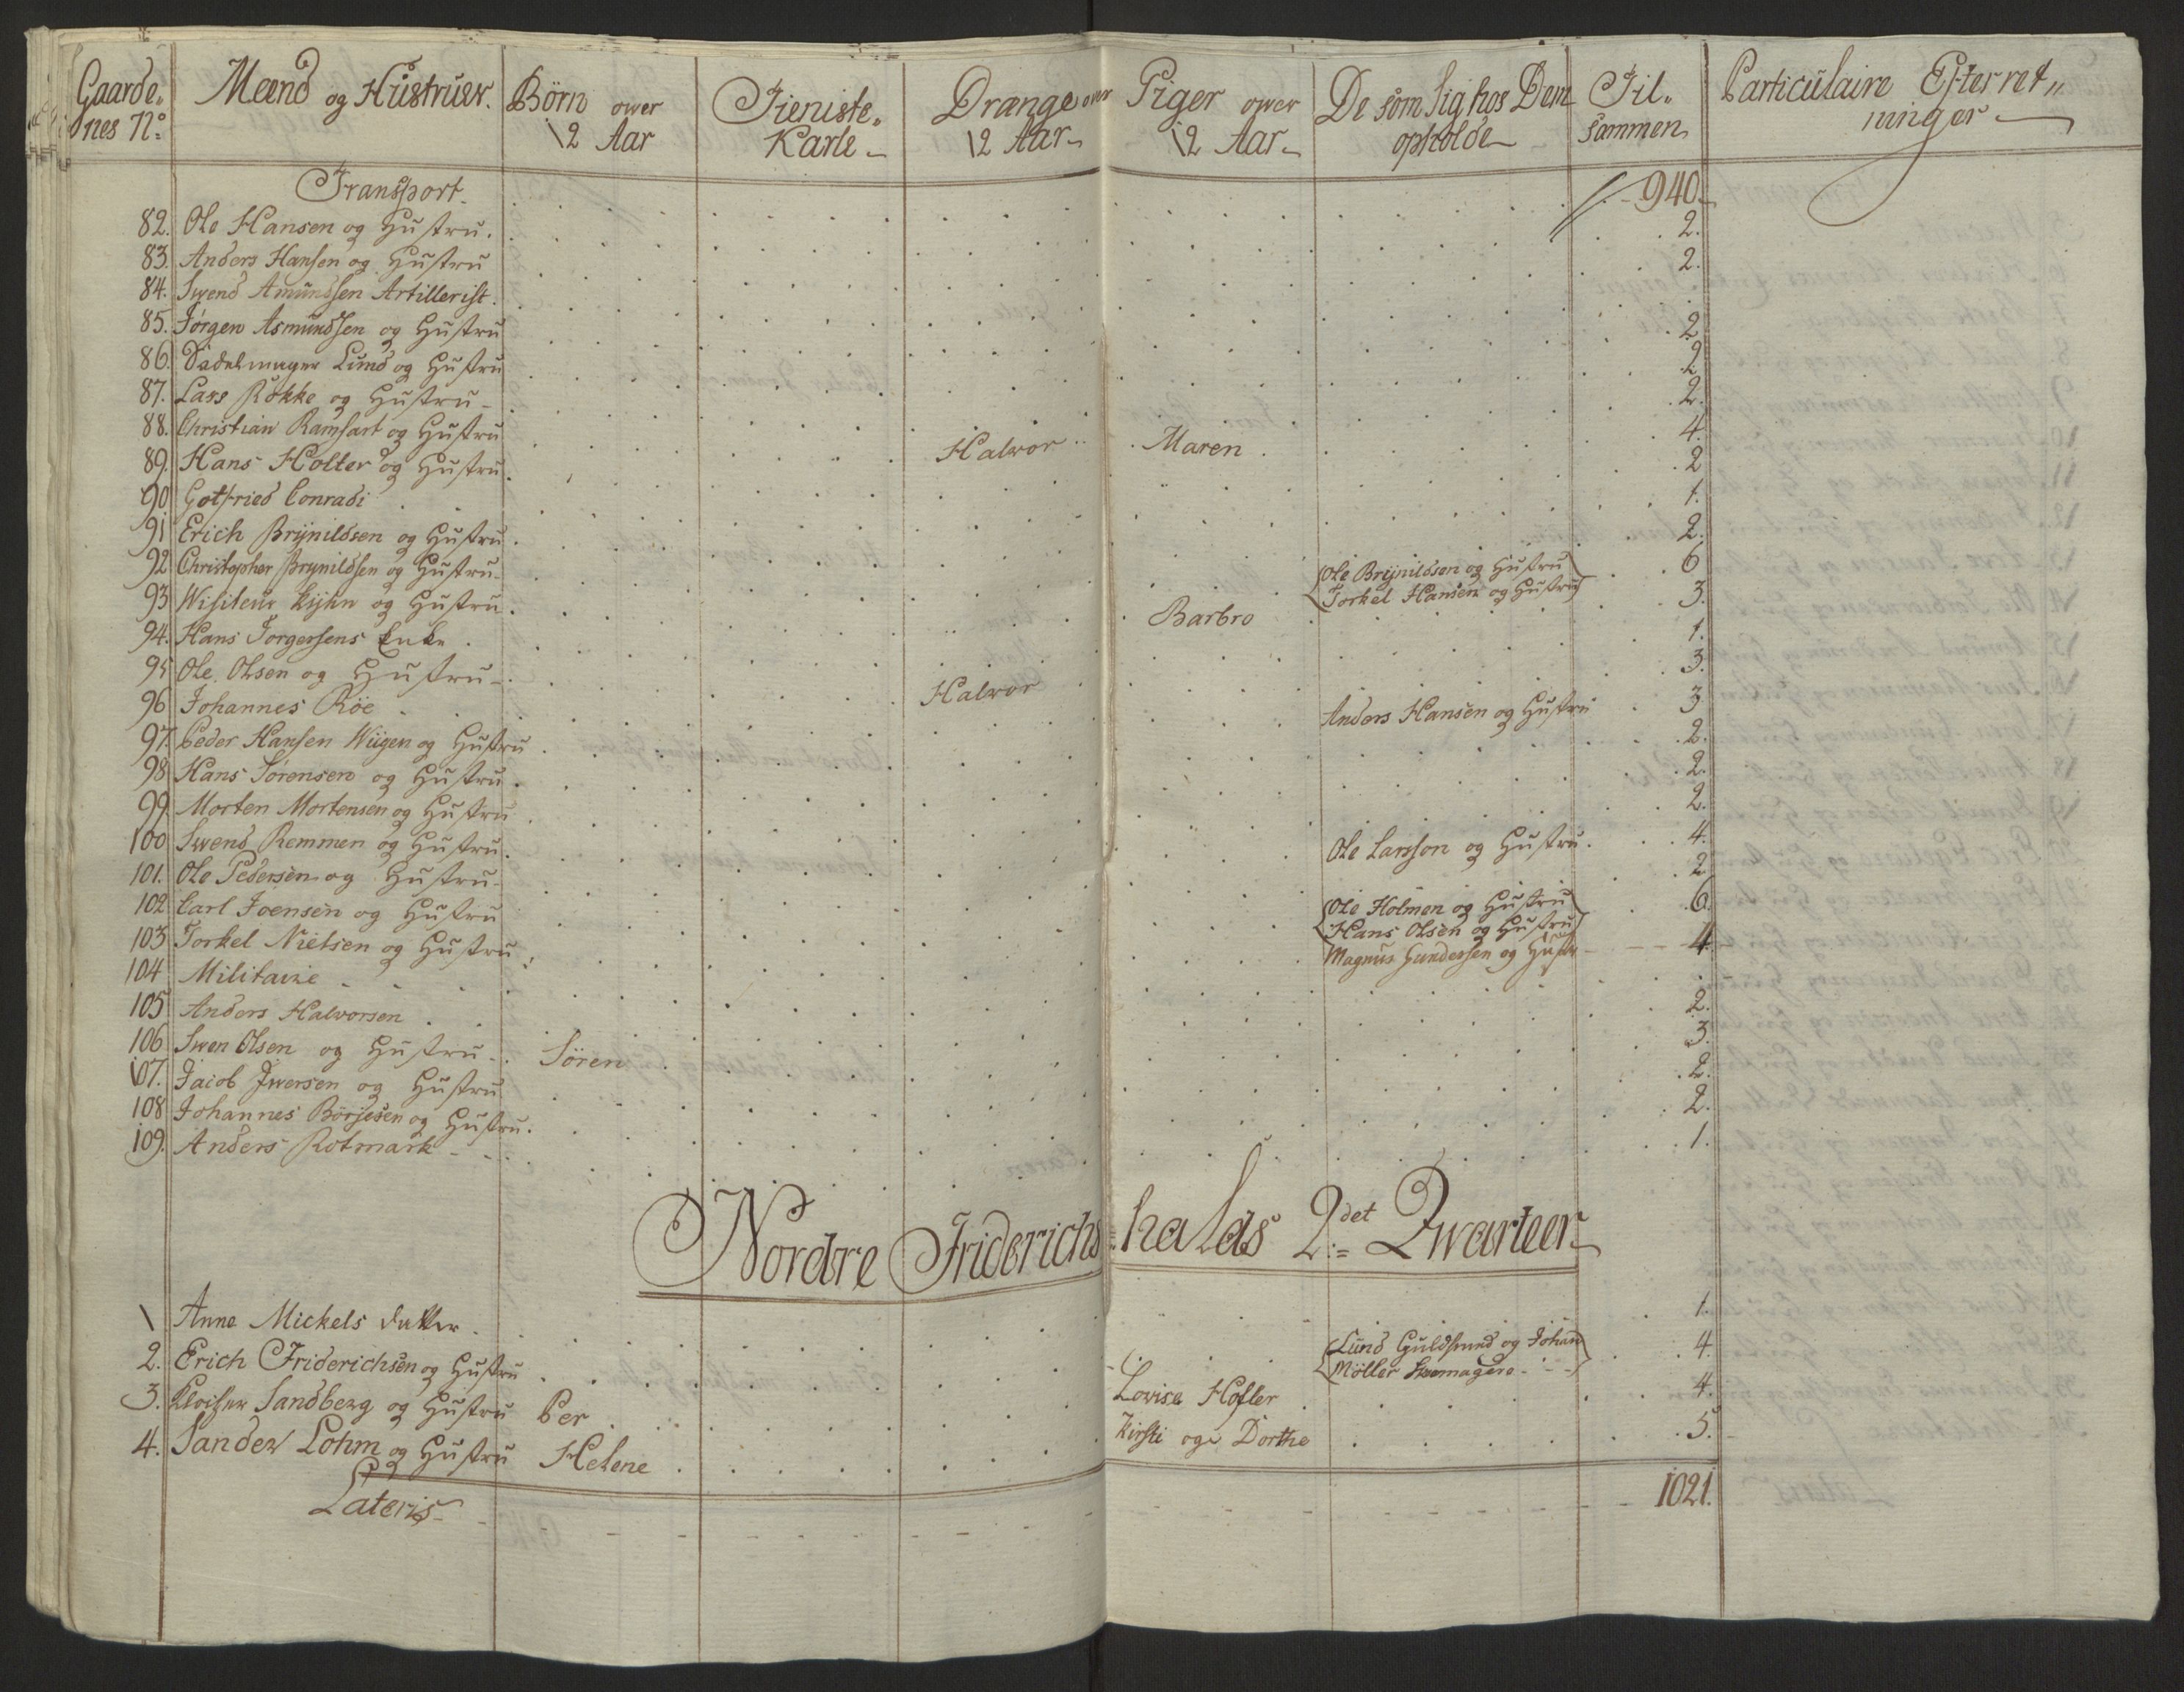 Gaarde„ nes No. Mænd og Hustruer. Börn ower 12 Aar Tieniste„ Karle Drænge ower 12 Aar Piger ower 12 Aar De som Sig hos Dem opholde Til„ sammen Particulaire Efterret„ ninger
Transport 940.
82. Ole Hansen og Hustru. 2.
83. Anders Hansen og Hustru 2.
84. Swend Amundsen Artillerist.
85. Jörgen Asmundsen og Hustru 2.
86. Sadelmager Lund og Hustru 2
87. Lars Rökke og Hustru 2.
88. Christian Ramhart og Hustru Halvor Maren 4.
89. Hans Holter og Hustru 2
90 Gotfried Conradi 1.
91 Erich Brynildsen og Hustru 2.
92 Christopher Brynildsen og Hustru Ole Brynildsen og Hustru
Torkel Hansen og Hustru 6
93 Wisiteur Kyhn og Hustru Barbro 3.
94. Hans Torgersens Enke 1.
95 Ole Olsen og Hustru Halvor 3.
96 Johannes Röe Anders Hansen og Hustru 3
97. Peder Hansen Wiigen og Hustru 2.
98 Hans Sörensen og Hustru 2.
99 Morten Mortensen og Hustru 2.
100 Swend Remmen og Hustru Ole Larsson og Hustru 4.
101. Ole Pedersen og Hustru 2
102 Carl Joensen og Hustru Ole Holmen og Hustru
Hans Olsen og Hustru 6.
103 Torkel Nielsen og Hustru Magnus Gundersen og Hustr 4
104 Militaire
105 Anders Halvorsen 2.
106 Swen Olsen og Hustru Sören 3.
107. Jacob Iversen og Hustru 2.
108 Johannes Börjesen og Hustru. 2.
109. Anders Rotmark 1.
Nordre Friderichshalds 2det Qwarteer
1 Anne Mickels datter 1.
2. Erich Friderichsen og Hustru Lund Guldsmed og Johan
Möller 4.
3. Sandberg og Hustru Per Lovise Hofler 4.
4. Sander Lohm og Hustru Helene Kirsti oge Dorthe 5.
Lateris 1021.